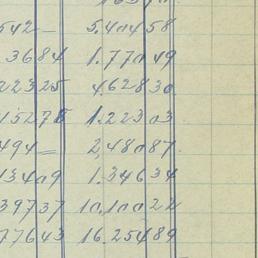 542 — 5.404 58
3684 1.770 49
22325 4.628 30
15278 1.223 03
494 = 2,480 87
13409 1.346 34
39737 10.100 22
77643 16.254 89